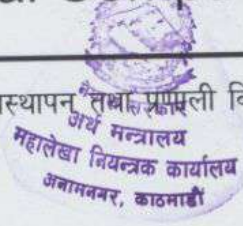 स्थापन तथा प्रणाली वि
नेपाल सरकार
अर्थ मन्त्रालय
महालेखा नियन्त्रक कार्यालय
अनामनगर, काठमाडौं